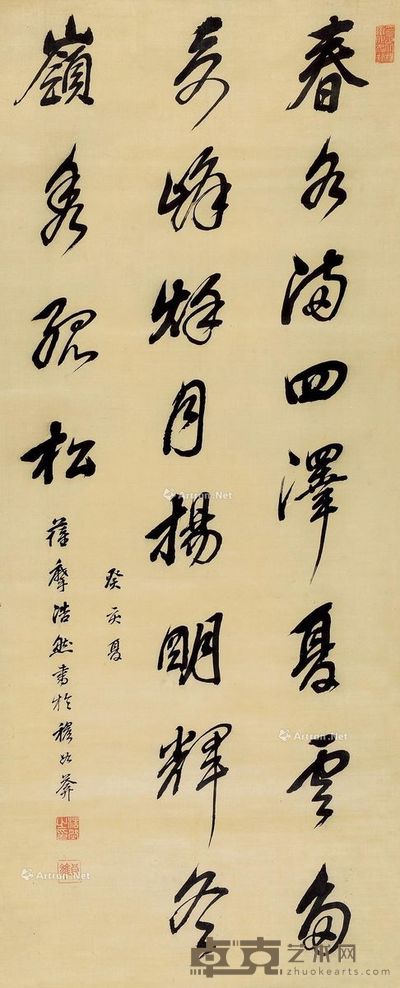 春水滿四澤夏雲多
奇峰秋月揚明輝冬
嶺秀孤松
癸亥夏
浩然書於穆如
Artron.Net
Artron.Net
Artron.Net
Artron.Net
卓克艺术网
zhuokearts.com